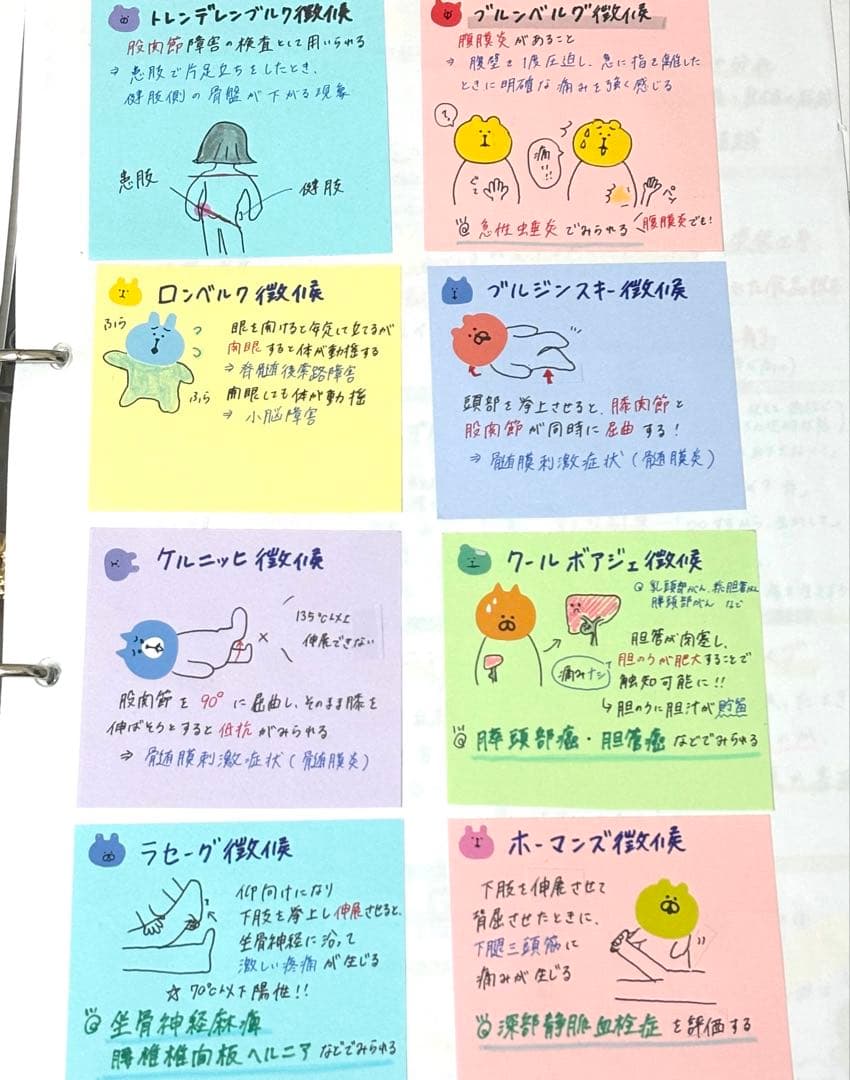 トレンデレンブルク徴候
股関節障害の検査として用いられる
⇒ 患肢で片足立ちをしたとき、
健肢側の骨盤が下がる現象
患肢
健肢
ブルンベルグ徴候
腹膜炎があること
⇒ 腹壁を1度圧迫し、急に指を離した
ときに明確な痛みを強く感じる
痛い!!
ぐっ
パッ
急性虫垂炎でみられる 腹膜炎でも!
ロンベルク徴候
ふら
ふら
眼を開けると安定して立てるが
閉眼すると体が動揺する
⇒ 脊髄後索路障害
開眼しても体が動揺
⇒ 小脳障害
ブルジンスキー徴候
頭部を挙上させると、膝関節と
股関節が同時に屈曲する!
⇒ 髄膜刺激症状(髄膜炎)
ケルニッヒ徴候
135℃以上
伸展できない
股関節を90°に屈曲し、そのまま膝を
伸ばそうとすると抵抗がみられる
⇒ 髄膜刺激症状(髄膜炎)
クールボアジェ徴候
乳頭部がん、総胆管がん
膵頭部がん など
胆管が閉塞し、
胆のうが肥大することで
触知可能に!!
痛みナシ
↳ 胆のうに胆汁が貯留
膵頭部癌・胆管癌 などでみられる
ラセーグ徴候
仰向けになり
下肢を挙上し伸展させると、
坐骨神経に沿って
激しい疼痛が生じる
☆70℃以下陽性!!
坐骨神経麻痺
腰椎椎間板ヘルニア などでみられる
ホーマンズ徴候
下肢を伸展させて
背屈させたときに、
下腿三頭筋に
痛みが生じる
深部静脈血栓症 を評価する